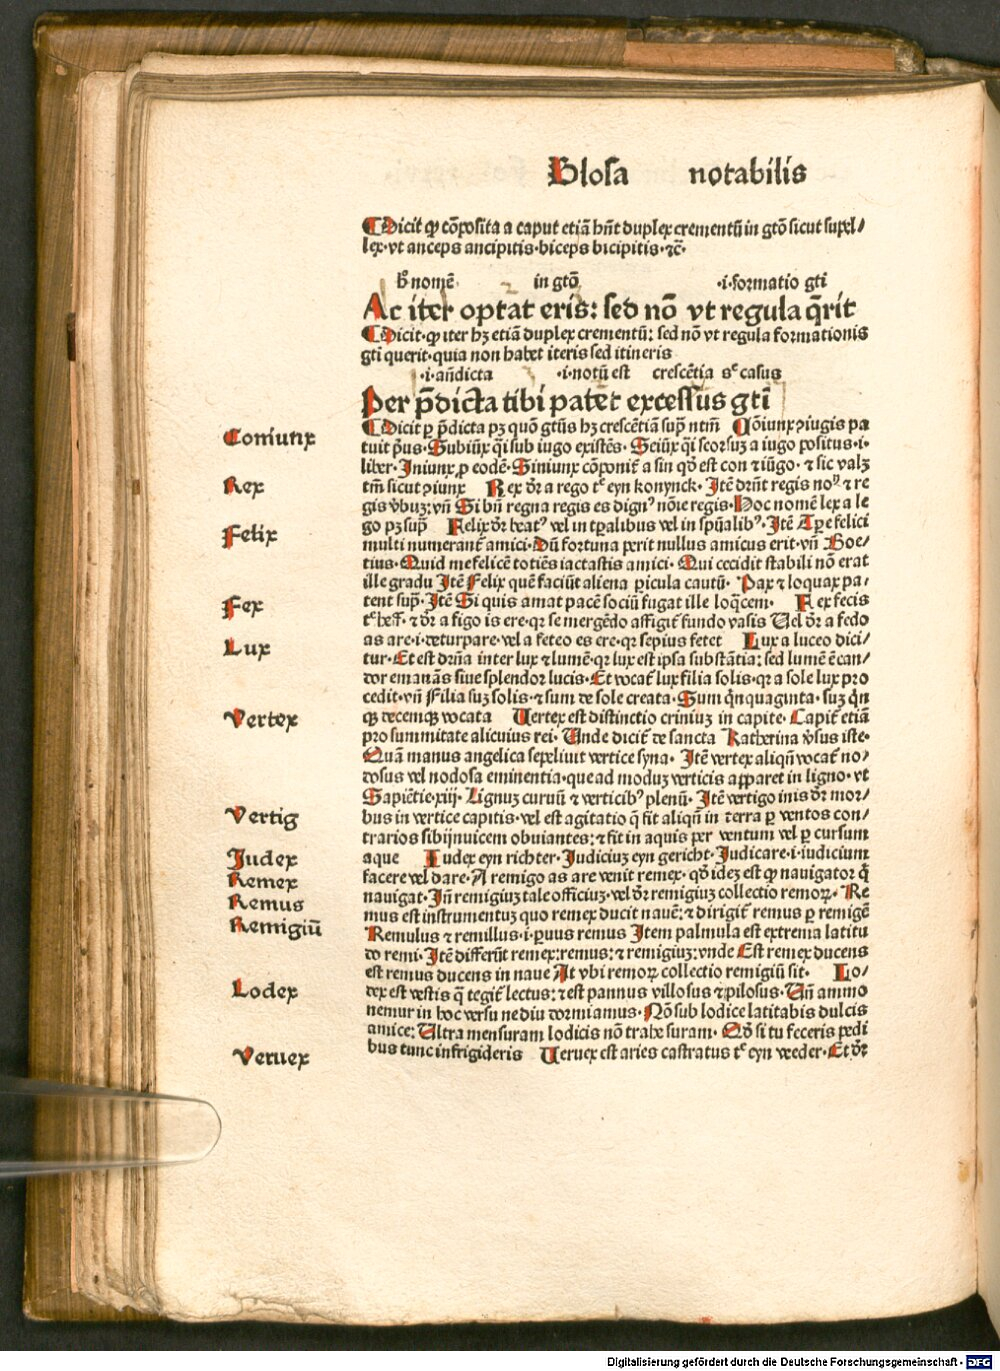 Glosa notabilis
¶ Dicit qp cōposita a caput etiā hn̄t duplex crementū in gtō sicut supel/
lex·vt anceps ancipitis·biceps bicipitis·⁊c̄·
h̄ nomē in gtō ·i·formatio gti
Ac iter optat eris: sed nō vt regula q̄rit
¶ Dicit·qp iter hꝫ etiā duplex crementū: sed nō vt regula formationis
gti querit·quia non habet iteris sed itineris
·i·an̄dicta ·i·notū est crescētia sc casus
Per p̄dicta tibi patet excessus gti
¶ Dicit ꝑ p̄dicta pꝫ quō gtūs hꝫ crescētiā sup̄ ntm̄ Cōiunx ꝯiugis pa
Coniunx
tuit p̄us·Subiūx q̄i sub iugo existēs·Seiūx q̄i seorsuꝫ a iugo positus·i·
liber·Iniunx ꝓ eodē·Siniunx cōponit̄ a sin qd̄ est con ⁊ iūgo·⁊ sic valꝫ
Rex
tm̄ sicut ꝯiunx Rex dr̄ a rego te eyn konynck·Itē drn̄t regis noꝰ ⁊ re
gis v̄buꝫ: vn̄ Si bn̄ regna regis es dignꝰ nōie regis·Hoc nomē lex a le
go pꝫ sup̄ Felix dr̄ beatꝰ vel in tp̄alibus vel in sp̄ualibꝰ·Itē Tp̄e felici
Felix
multi numerant̄ amici·Dū fortuna perit nullus amicus erit·vn̄ Boe/
tius·Quid me felicē totiēs iactastis amici·Qui cecidit stabili nō erat
ille gradu Itē Felix quē faciūt aliena ꝑicula cautū· Pax ⁊ loquax pa/
tent sup̄·Itē Si quis amat pacē sociū fugat ille loq̄cem· Fex fecis
Fex
te heff·⁊ dr̄ a figo is ere·qꝛ se mergēdo affigit̄ fundo vasis Uel dr̄ a fedo
as are·i·deturpare·vel a feteo es ere·qꝛ sepius fetet Lux a luceo dici/
Lux
tur·Et est dr̄na inter lux ⁊ lumē·qꝛ lux est ipsa substātia: sed lumē ē can/
dor emanās siue splendor lucis·Et vocat̄ lux filia solis·qꝛ a sole lux pro
cedit·vn̄ Filia suꝫ solis·⁊ sum de sole creata·Sum qn̄quaginta·suꝫ qn̄
qꝫ decemqꝫ vocata Uertex est distinctio criniuꝫ in capite·Capit̄ etiā
Vertex
pro summitate alicuius rei·Unde dicit̄ de sancta Katherina v̄sus iste·
Quā manus angelica sepeliuit vertice syna·Itē vertex aliqn̄ vocat̄ no/
dosus vel nodosa eminentia·que ad moduꝫ verticis apparet in ligno·vt
Sapiētie·xiij·Lignuꝫ curuū ⁊ verticibꝰ plenū·Itē vertigo inis dr̄ mor/
Vertig
bus in vertice capitis·vel est agitatio q̄ fit aliqn̄ in terra ꝑ ventos con/
trarios sibijnuicem obuiantes: ⁊ fit in aquis per ventum vel ꝑ cursum
Judex
aque Iudex eyn richter·Judiciuꝫ eyn gericht·Judicare·i·iudicium
Remex
facere vel dare·A remigo as are venit remex·qd̄ ideꝫ est qp nauigator q̄
nauigat·In̄ remigiuꝫ tale officiuꝫ·vel dr̄ remigiuꝫ collectio remoꝝ·Re
Remus
mus est instrumentuꝫ quo remex ducit nauē: ⁊ dirigit̄ remus ꝑ remigē
Remigiū
Remulus ⁊ remillus·i·ꝑuus remus Item palmula est extrema latitu
do remi·Itē differūt remex: remus: ⁊ remigiuꝫ: vnde Est remex ducens
est remus ducens in naue At vbi remoꝝ collectio remigiū sit· Lo/
Lodex
dex est vestis q̄ tegit̄ lectus: ⁊ est pannus villosus ⁊ pilosus·Un̄ ammo
nemur in hoc versu ne diu dormiamus·Nō sub lodice latitabis dulcis
amice: Ultra mensuram lodicis nō trahe suram·Qd̄ si tu feceris pedi
Veruex
bus tunc infrigideris Ueruex est aries castratus te eyn weder·Et dr̄
Digitalisierung gefördert durch die Deutsche Forschungsgemeinschaft - DFG